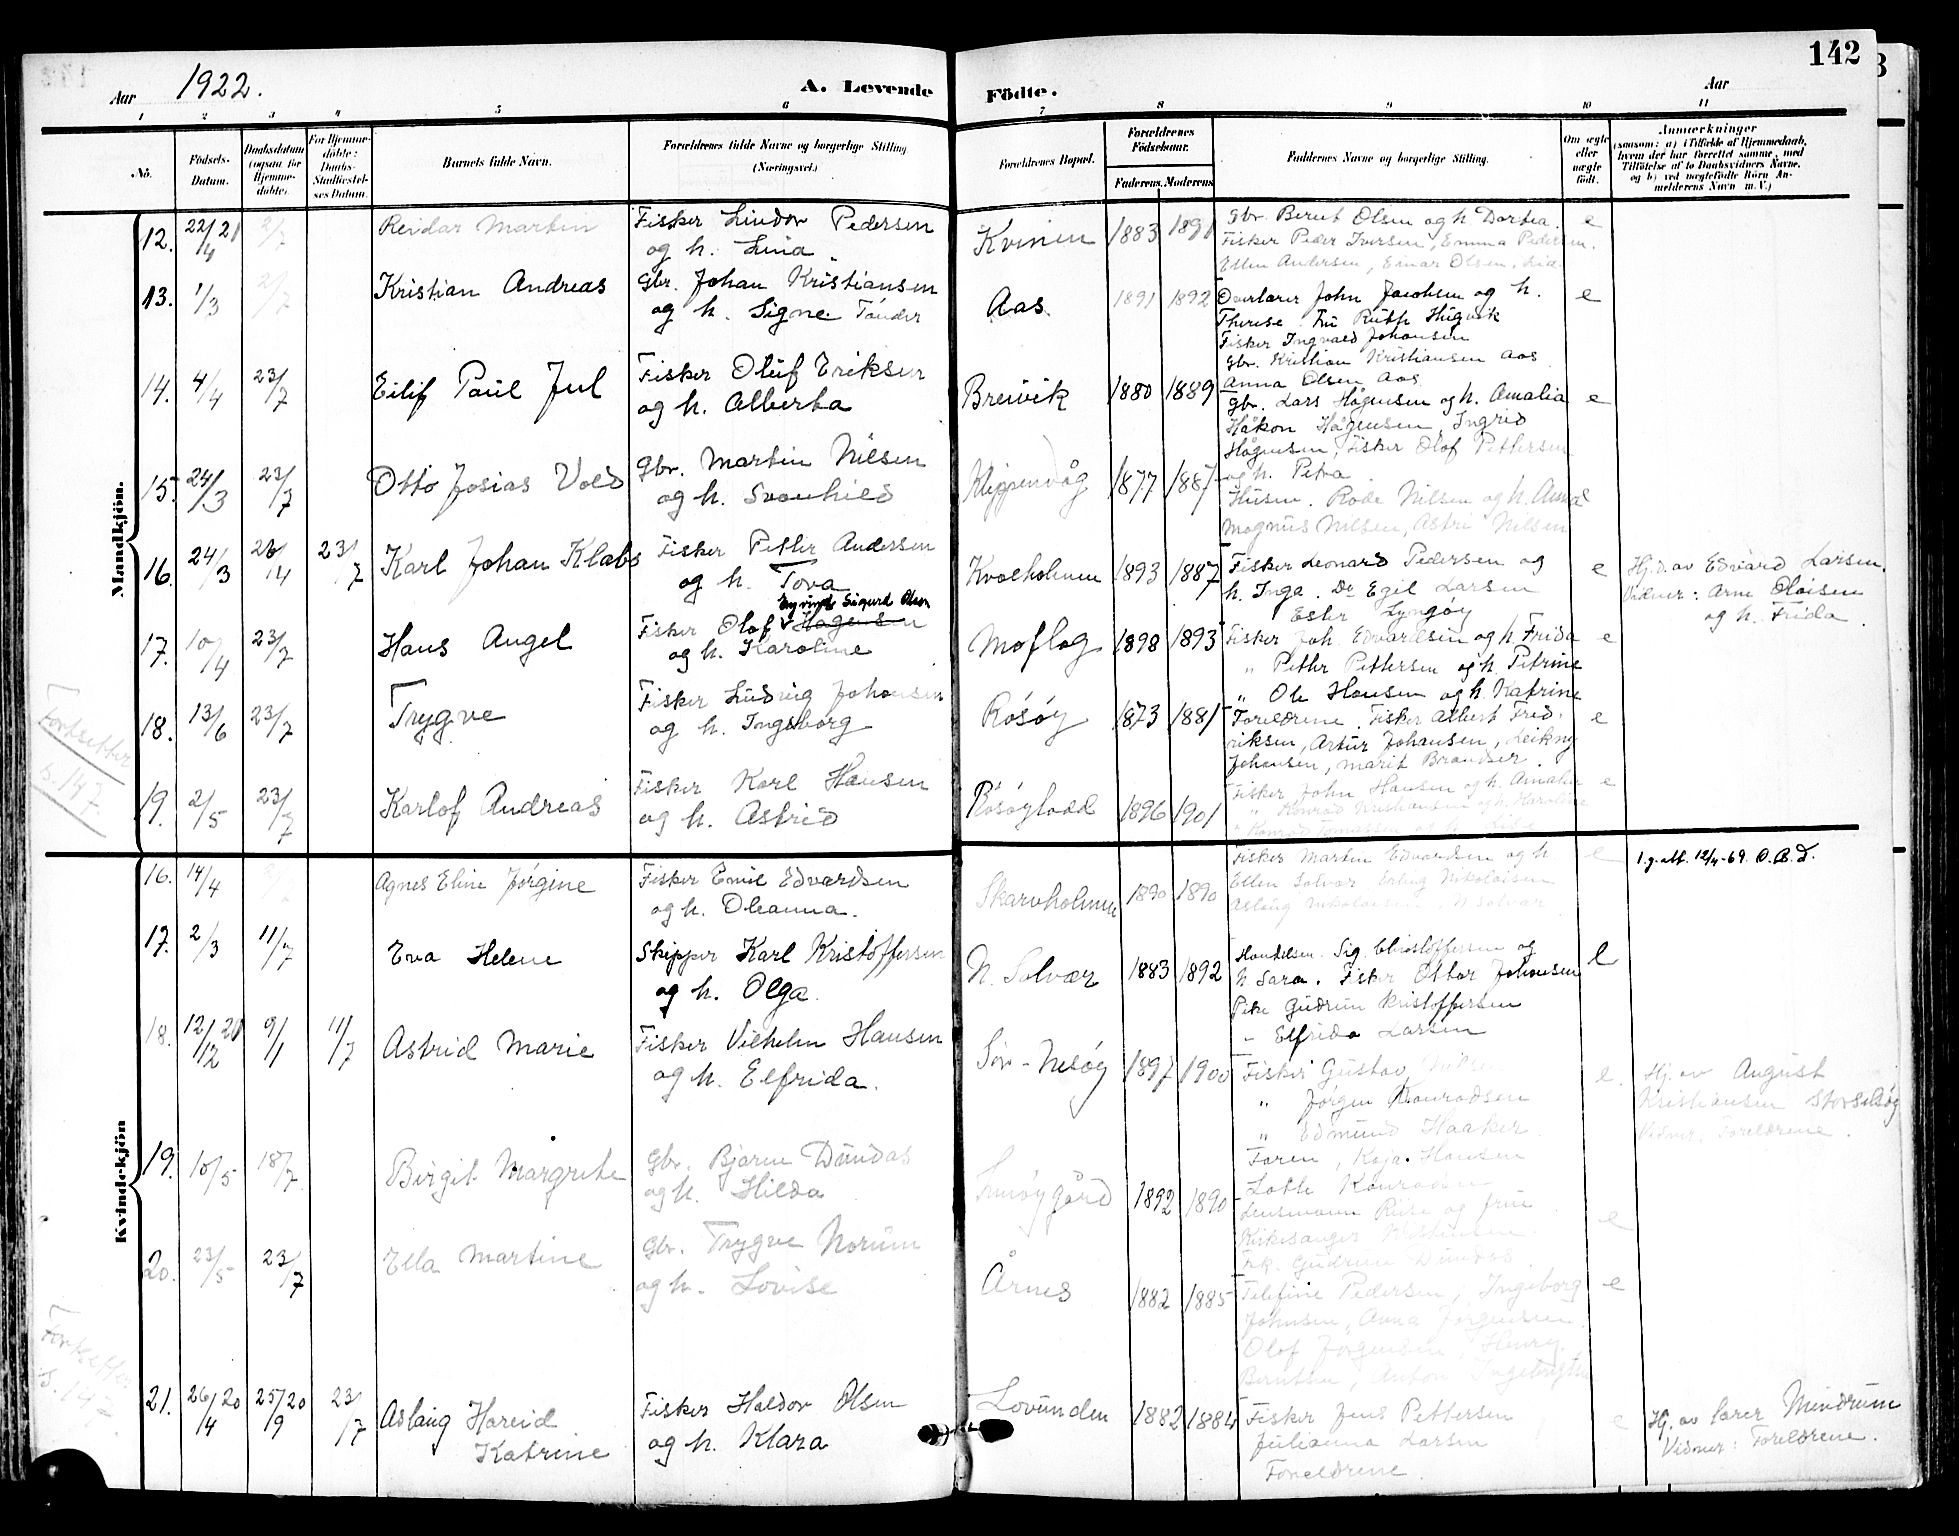 142
Aar 1922. A. Levende Födte. Aar
1 2 3 4 5 6 7 8 9 10 11
No. Födsels-Datum. Daabsdatum (ogsaa for Hjemme-döbte). For Hjemme-döbte: Daabs-Stadfæstel-ses Datum. Barnets fulde Navn. Forældrenes fulde Navne og borgerlige Stilling (Næringsvei.) Forældrenes Bopæl. Forældrenes Födselsaar. Faderens. Moderens. Faddernes Navne og borgerlige Stilling. Om ægte eller uægte født. Anmærkninger (saasom: a) i Tilfælde af Hjemmedaab, hvem der har forrettet samme, med Tilföielse af to Daabsvidners Navne, og b) ved uægtefödte Börn An-melderens Navn m. V.)
Mandkjön.
12. 22/4 21 2/7 Reidar Martin Fisker Lindor Pedersen Kvinen 1883 1891 Gbr. Berut Olsen og h. Dortea. e
og h. Lina Fisker Peder Iversen, Emma Pedersen.
Ellen Andersen, Einar Olsen,
13. 1/3 2/7 Kristian Andreas Gbr. Johan Kristiansen Aas 1891 1892 Overlærer John Jacobsen og h. e
og h. Signe Tönder Therese. Fru Ruth Hugvik
Fisker Ingvald Johansen
Gbr. Kristian Kristiansen Aas
Anna Olsen Aas
14. 4/4 23/7 Eilif Paul Jul Fisker Oluf Eriksen Breivik 1880 1889 Gbr. Lars Hågensen og h. Amalia e
og h. Alberta Håkon Hågensen, Ingrid
Hågensen, Fisker Olof Pettersen
og h. Petra
15. 24/3 23/7 Otto Josias Vold Gbr. Martin Nilsen Klippenvåg 1877 1887 Husm. Rode Nilsen og h. Anna e
og h. Svanhild Magnus Nilsen, Astri Nilsen
16. 24/3 26/4 23/7 Karl Johan Klabo Fisker Petter Andersen Kvalholmen 1893 1887 Fisker Leonard Pedersen og e Hj.d. av Edvard Larsen.
og h. Tova h. Inga. Do Egil Larsen Vidner: Arne Oloisen
Ester Lyngøy og h. Frida.
Eyvind Sigurd Olsen
17. 10/4 23/7 Hans Angel Fisker Olaf Hagensen Moflag 1898 1893 Fisker Joh. Edvardsen og h Frida e
og h. Karoline " Petter Pettersen og h. Petrine
" Ole Hansen og h. Katrine
18. 13/6 23/7 Trygve Fisker Ludvig Johansen Rósøy 1873 1881 Foreldrene. Fisker Albert Fred- e
og h. Ingeborg riksen, Artur Johansen, Leikny
Johansen, Marit Brandser.
19. 2/5 23/7 Karlof Andreas Fisker Karl Hansen Rósøylodd 1896 1901 Fisker John Hansen og h. Amalie e
og h. Astrid " Konrad Kristiansen og h. Karoline
Fortsetter
s. 147.
Kvindekjön
16. 14/4 Agnes Eline Jørgine Fisker Emil Edvardsen Skarvholmen 1890 1890 Fisker Martin Edvardsen og h. e 1.g.att. 12/4-69. O.B.D.
og h. Oleanna. Ellen Solvær. Erling Nikolaisen
Aslaug Nikolaisen N. Solvær
17. 2/3 11/7 Eva Helene Skipper Karl Kristoffersen N. Solvær 1883 1892 Handelsm. Sig. Christoffersen og e
og h. Olga. h Sara. Fisker Ottar Johansen
Pike Gudrun Kristoffersen
- Elfrida Larsen
18. 12/12 20 9/1 11/7 Astrid Marie Fisker Vilhelm Hansen Sør-Nesøy 1897 1900 Fisker Gustav e. Hj. av August
og h. Elfrida. " Jørgen Konradsen Kristiansen Storselsøy
" Edmund Haaker Vidner: Foreldrene.
Faren, Kaja Hansen
Lotte Konradsen
19. 10/5 18/7 Birgit Margrete Gbr. Bjarne Dundas 1892 1890 Lensmann Riise og frue e
og h. Hilda Kirkesanger Kristensen
Frk. Gudrun Dundas
20. 23/5 23/7 Ella Martine Gbr. Trygve Norum Årnes 1882 1885 Telefine Pedersen, Ingeborg e
og h. Lovise Johnsen, Anna Jørgensen
Olof Jørgensen, Henry
Berntsen, Anton Ingebrigtsen
21. 26/4 20 25/9 20 23/7 Aslaug Hareid Fisker Haldor Olsen Lovunden 1882 1884 Fisker Jens Pettersen e Hj. av lærer Mindrum
Katrine og h. Klara Julianna Larsen Vidner: Foreldrene.
Foreldrene.
Fortsetter